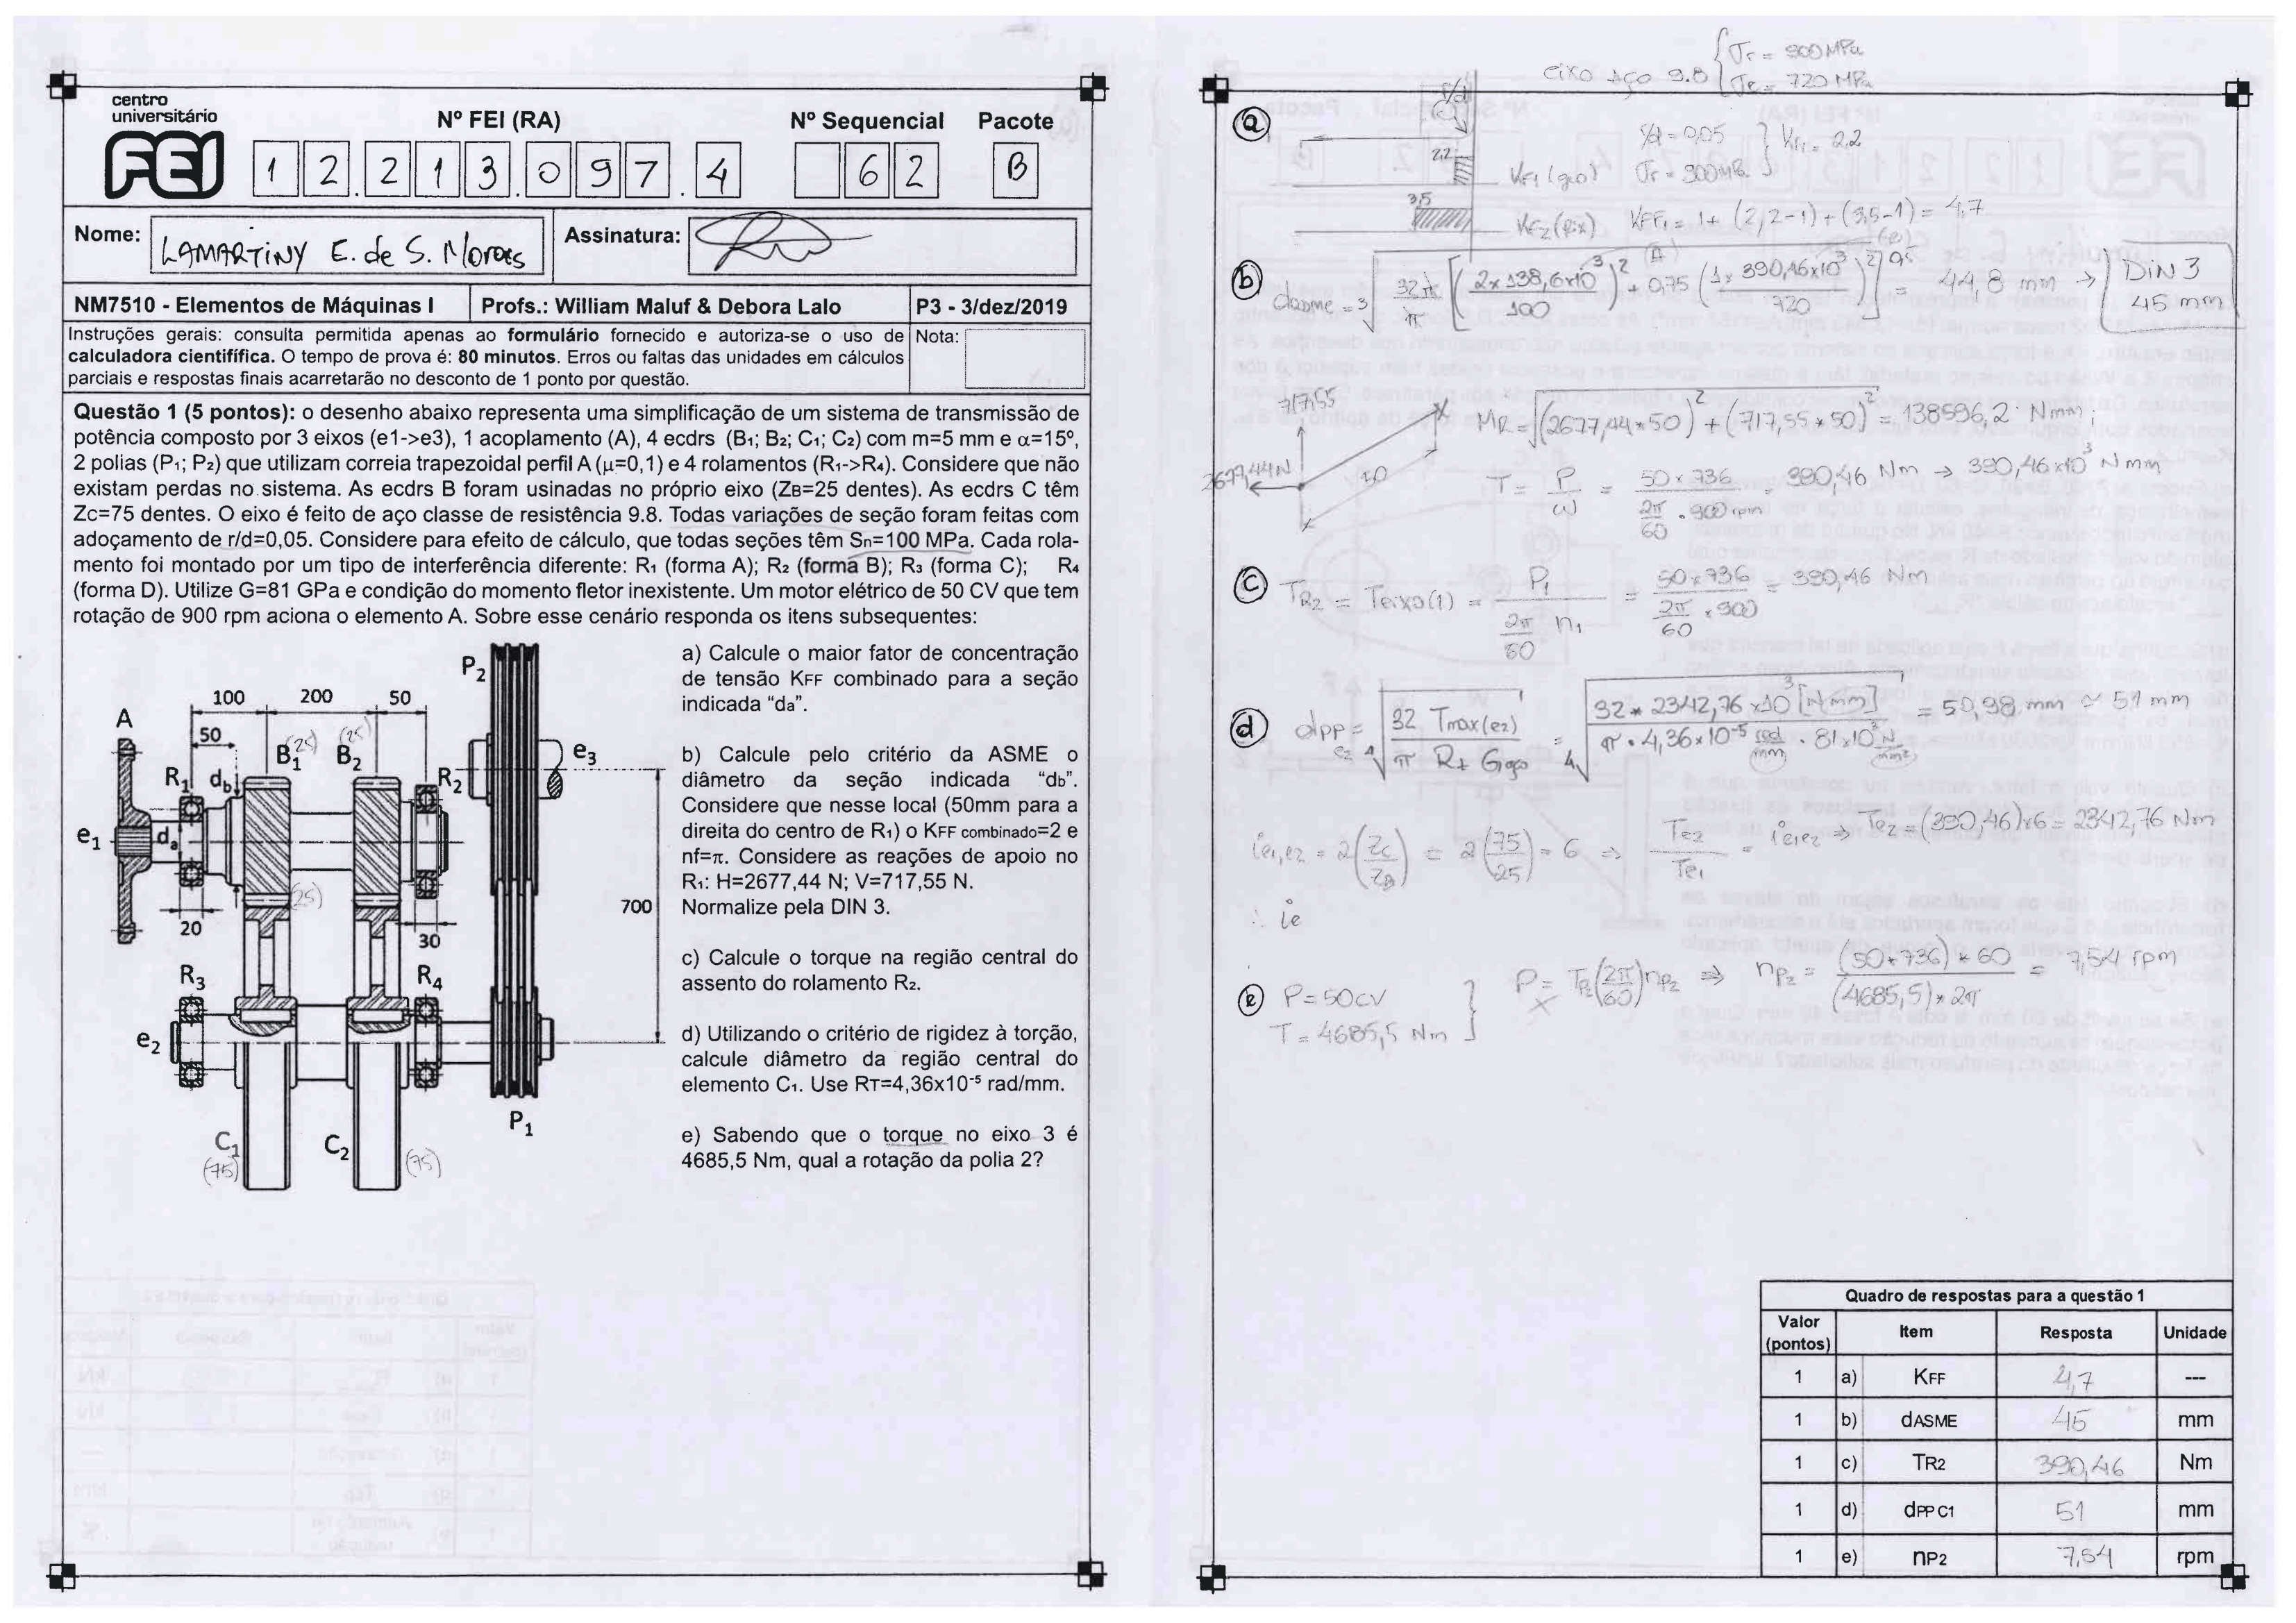 centro
universitário
FEI
Nº FEI (RA)
Nº Sequencial
Pacote
1 2 . 2 1 3 . 0 9 7 . 4
6 2
B
Nome: LAMARTINY E. de S. Moraes
Assinatura:
NM7510 - Elementos de Máquinas I
Profs.: William Maluf & Debora Lalo
P3 - 3/dez/2019
Instruções gerais: consulta permitida apenas ao formulário fornecido e autoriza-se o uso de
calculadora cientifífica. O tempo de prova é: 80 minutos. Erros ou faltas das unidades em cálculos
parciais e respostas finais acarretarão no desconto de 1 ponto por questão.
Nota:
Questão 1 (5 pontos): o desenho abaixo representa uma simplificação de um sistema de transmissão de
potência composto por 3 eixos (e1->e3), 1 acoplamento (A), 4 ecdrs (B1; B2; C1; C2) com m=5 mm e α=15º,
2 polias (P1; P2) que utilizam correia trapezoidal perfil A (μ=0,1) e 4 rolamentos (R1->R4). Considere que não
existam perdas no sistema. As ecdrs B foram usinadas no próprio eixo (ZB=25 dentes). As ecdrs C têm
Zc=75 dentes. O eixo é feito de aço classe de resistência 9.8. Todas variações de seção foram feitas com
adoçamento de r/d=0,05. Considere para efeito de cálculo, que todas seções têm Sn=100 MPa. Cada rola-
mento foi montado por um tipo de interferência diferente: R1 (forma A); R2 (forma B); R3 (forma C); R4
(forma D). Utilize G=81 GPa e condição do momento fletor inexistente. Um motor elétrico de 50 CV que tem
rotação de 900 rpm aciona o elemento A. Sobre esse cenário responda os itens subsequentes:
100 200 50
50
A
B1 (25) B2 (25)
R1 db R2
e1 da
(25)
20 30
R3 R4
e2
C1 (75) C2 (75)
P2
e3
700
P1
a) Calcule o maior fator de concentração
de tensão KFF combinado para a seção
indicada “da”.
b) Calcule pelo critério da ASME o
diâmetro da seção indicada “db”.
Considere que nesse local (50mm para a
direita do centro de R1) o KFF combinado=2 e
nf=π. Considere as reações de apoio no
R1: H=2677,44 N; V=717,55 N.
Normalize pela DIN 3.
c) Calcule o torque na região central do
assento do rolamento R2.
d) Utilizando o critério de rigidez à torção,
calcule diâmetro da região central do
elemento C1. Use RT=4,36x10⁻⁵ rad/mm.
e) Sabendo que o torque no eixo 3 é
4685,5 Nm, qual a rotação da polia 2?
eixo Aço 9.8 { σr = 900 MPa
σe = 720 MPa
(a)
r/d = 0,05 } Kf1 = 2,2
2,2 Kf1 (geo) σr = 900 MPa
3,5 Kf2 (fix) KFF1 = 1 + (2,2-1) + (3,5-1) = 4,7
(b) dasme = ³√ 32π/π [ (2 x 138,6x10³ / 100)² + 0,75 (1 x 390,46x10³ / 720)² ]^0,5 = 44,8 mm → DIN 3
45 mm
717,55
2677,44N
MR = √(2677,44*50)² + (717,55*50)² = 138596,2 Nmm
T = P/ω = 50 x 736 / (2π/60 . 900 rpm) = 390,46 Nm → 390,46x10³ Nmm
(c) TR2 = Teixo(1) = P1 / (2π/60 n1) = 50x736 / (2π/60 x 900) = 390,46 Nm
(d) dpp e2 = ⁴√ 32 Tmax(e2) / π Rt Gaço = ⁴√ 32 * 2342,76 x10³ [Nmm] / π . 4,36x10⁻⁵ rad/mm . 81x10³ N/mm² = 50,98 mm ≃ 51 mm
ie1,e2 = 2(Zc/ZB) = 2(75/25) = 6 ⇒ Te2/Te1 = ie1e2 ⇒ Te2 = (390,46)x6 = 2342,76 Nm
∴ ie
(e) P = 50 CV } P = TP2 (2π/60) nP2 ⇒ nP2 = (50*736) * 60 / (4685,5) * 2π = 7,54 rpm
T = 4685,5 Nm
Quadro de respostas para a questão 1
Valor (pontos) Item Resposta Unidade
1 a) KFF 4,7 ---
1 b) dASME 45 mm
1 c) TR2 390,46 Nm
1 d) dPP C1 51 mm
1 e) nP2 7,54 rpm